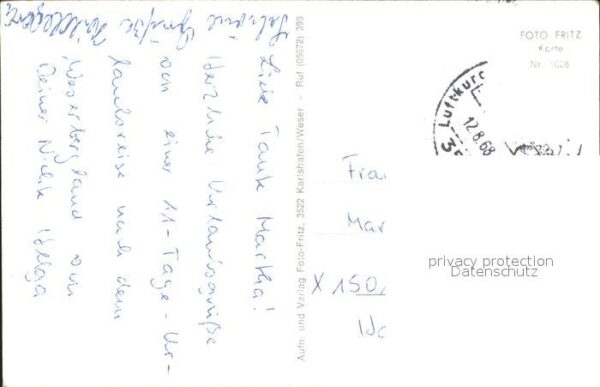 Liebe Tante Martha!
Herzliche Urlaubsgrüße
von einer 11-Tage-Ur-
laubsreise nach dem
Weserbergland von
Deiner Nichte Helga
Aufn. und Verlag Foto-Fritz, 3522 Karlshafen/Weser - Ruf (05672) 393
FOTO FRITZ
Karte
Nr. 1028
Luftkur
12.8.68
35
Frau
Mar
X 150
privacy protection
Datenschutz